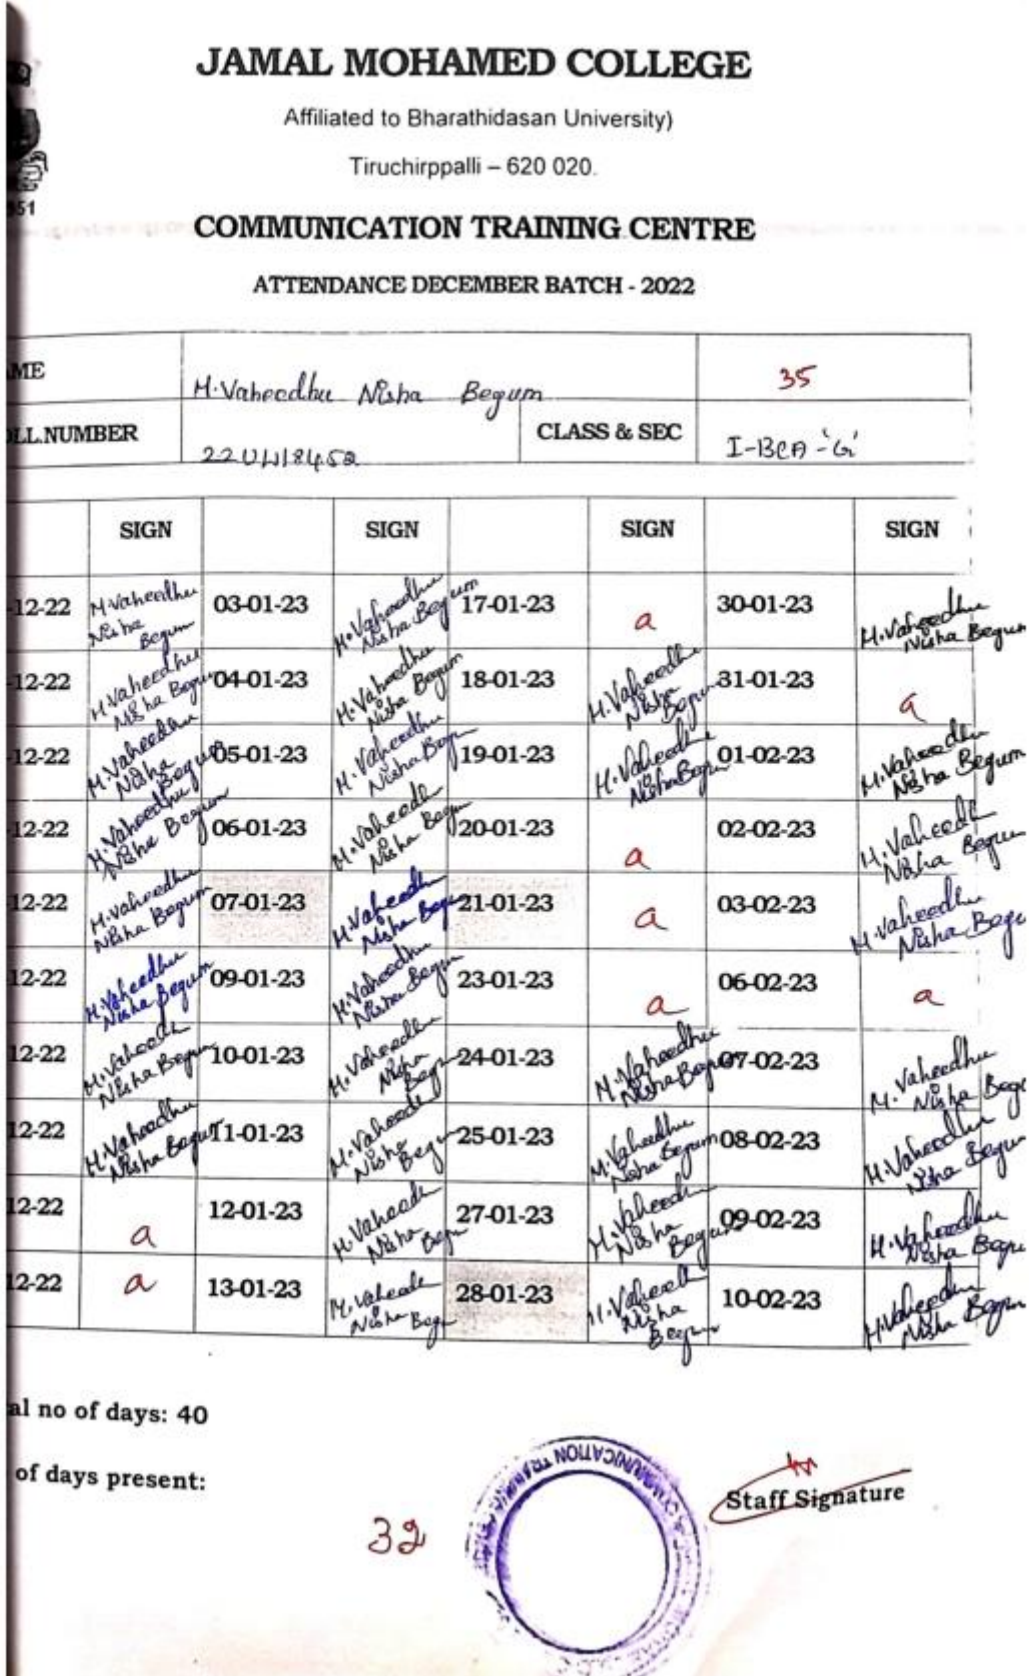 JAMAL MOHAMED COLLEGE
Affiliated to Bharathidasan University)
Tiruchirppalli – 620 020.
51
COMMUNICATION TRAINING CENTRE
ATTENDANCE DECEMBER BATCH - 2022
ME M.Vaheedhu Nisha Begum 35
LL.NUMBER 22UU18452 CLASS & SEC I-BCA-'G'
SIGN SIGN SIGN SIGN
-12-22 M.Vaheedhu Nisha Begum 03-01-23 M.Vaheedhu Nisha Begum 17-01-23 a 30-01-23 M.Vaheedhu Nisha Begum
-12-22 M.Vaheedhu Nisha Begum 04-01-23 M.Vaheedhu Nisha Begum 18-01-23 M.Vaheedhu Nisha Begum 31-01-23 a
-12-22 M.Vaheedhu Nisha Begum 05-01-23 M.Vaheedhu Nisha Begum 19-01-23 M.Vaheedhu Nisha Begum 01-02-23 M.Vaheedhu Nisha Begum
-12-22 M.Vaheedhu Nisha Begum 06-01-23 M.Vaheedh Nisha Begum 20-01-23 a 02-02-23 M.Vaheedh Nisha Begum
12-22 M.Vaheedhu Nisha Begum 07-01-23 M.Vaheedh Nisha Begu 21-01-23 a 03-02-23 M.Vaheedhu Nisha Begu
12-22 M.Vaheedhu Nisha Begum 09-01-23 M.Vaheedhu Nisha Begum 23-01-23 a 06-02-23 a
12-22 M.Vaheedh Nisha Begum 10-01-23 M.Vaheedhu Nisha Begum 24-01-23 M.Vaheedhu Nisha Begum 07-02-23 M.Vaheedhu Nisha Begu
12-22 M.Vaheedhu Nisha Begum 11-01-23 M.Vaheedh Nisha Begum 25-01-23 M.Vaheedhu Nisha Begum 08-02-23 M.Vaheedhu Nisha Begum
12-22 a 12-01-23 M.Vaheedh Nisha Begu 27-01-23 M.Vaheedh Nisha Begum 09-02-23 M.Vaheedhu Nisha Begum
12-22 a 13-01-23 M.Vaheedh Nisha Begu 28-01-23 M.Vaheedh Nisha Begum 10-02-23 M.Vaheedhu Nisha Begum
al no of days: 40
of days present:
32
Staff Signature